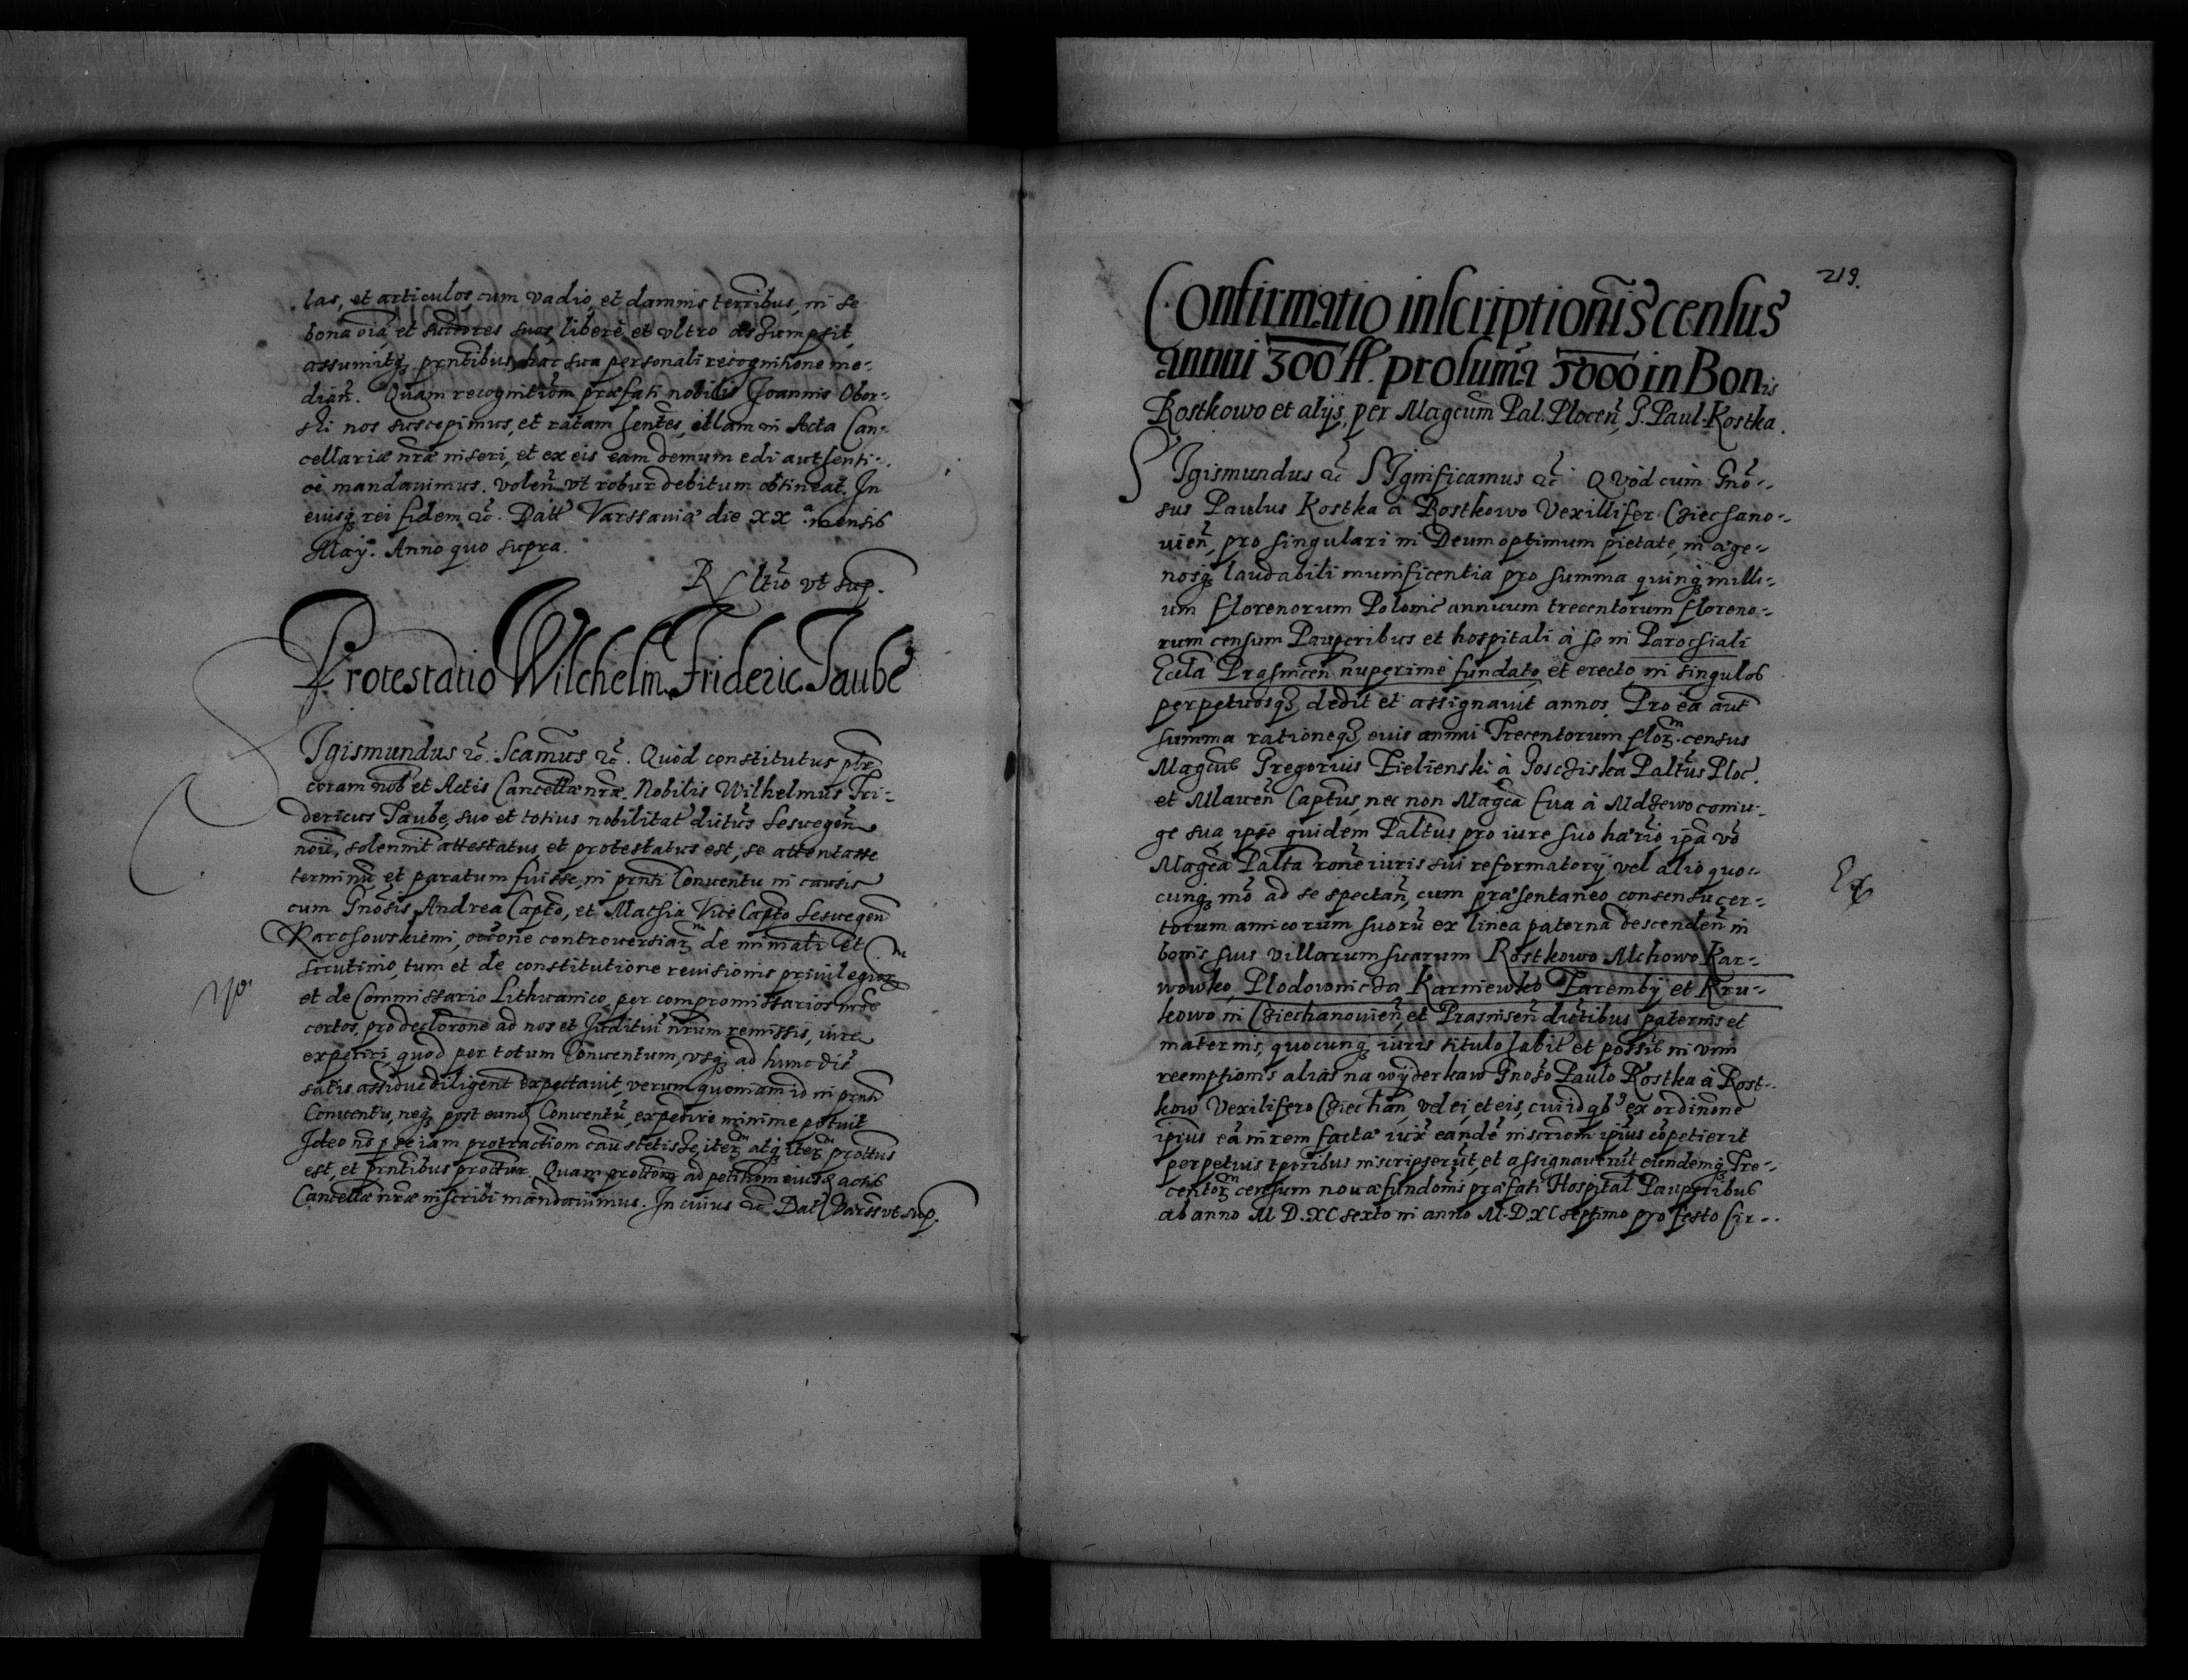 las, et articulos, cum vadio, et damnis terribus, in se
bona oia, et succores suos, libere et ultro assumpsit,
assumitq prntibus, hac sua personali recognitione me-
dian. Quam recognitiom præfati nobilis Joannis Obor-
ski nos suscepimus, et ratam hentes, illam in Acta Can-
cellariæ nræ inseri, et ex eis eam demum edi authenti-
ce mandavimus. volen vt robur debitum obtineat. In
cuiusq rei fidem &c. Datt Varssaviæ die XX a mensis
May. Anno quo supra.
R ltio vt sup.
Protestatio Wilchelm. Frideric. Taube
Igismundus &c. Scamus, &c. Quod constitutus ptr
coram nob et Actis Cancellæ nræ. Nobilis Wilhelmus Fri-
dericus Taube, suo et totius nobilitat dictus Seswegen
noie, solennit attestatus et protestatus est, se attentasse
terminu et paratum fuisse, in prnti Conventu in causis
cum Gnosis Andrea Capto, et Mathia Vice Capto Seswegen
Karchowskiemi, occone controversiar de inimati et
scrutinio, tum et de constitutione revisionis privilegior
et de Commissario Lithuanico, per compromissarios
certos, pro declorone ad nos et Juditiu nrum remissis, iure
experiri, quod per totum Conventum, vsq ad hunc die
satis assidue diligent expectavit, verum quoniam id in prnti
Conventu, neq post eund Conventu, expedire minime potuit
Ideo no p se iam protractiom cau stetisse, iter atq iter prottus
est, et prntibus prottur. Quam prottom ad petitiom eiusd actis
Cancellæ nræ inscribi mandavimus. In cuius &c. Dat Varss vt sup.
219.
Confirmatio inscriptionis census
annui 300 ff. pro suma 5000 in Bonis
Rostkowo et alijs, per Magcum Pal. Plocen, G. Paul. Kostka.
SIgismundus &c SIgnificamus &c. Quod cum Gno-
sus Paulus Kostka à Rostkowo Vexillifer Cziechano-
vien, pro singulari in Deum optimum pietate, in æge-
nosq laudabili munificentia pro summa quinq milli-
um florenorum Polonic annuum trecentorum floreno-
rum censum Pauperibus et hospitali à se in Parochiali
Eccla Prasnicen nuperime fundato, et erecto, in singulos
perpetuosq, dedit et assignavit annos. Pro ea aut
summa rationeq eius annui Trecentorum flor. census
Magcus Gregorius Zielienski à Goschiska Paltus Ploc.
et Mlaven Captus, nec non Magca Eva à Mdzewo coniu-
ge sua, ipse quidem Paltus pro iure suo hærio, ipa vo
Magca Palta rone iuris sui reformatorij vel alio quo-
cunq mo ad se spectan, cum præsentaneo consensu cer-
torum amicorum suoru ex linea paterna descenden in
bonis suis villarum suarum Rostkowo Mchowo Kar-
wowko, Plodownicza Karniewko Zaremby et Kru-
kowo in Cziechanovien, et Prasnisen dictibus paternis et
maternis, quocunq iuris titulo habit et possis in vim
reemptionis aliàs na wyderkaw Gnoso Paulo Kostka à Rost-
kow Vexilifero Cziechan, vel ei, et eis, cui id qb ex ordinone
ipius ea in rem factæ iux eande inscriom ipius copetierit
perpetuis tporibus inscripserut, et assignaverut, eundemq Tre-
centor censum novæ fundonis præfati Hospital Pauperibus
ab anno M.D.XC sexto in anno M.D.XC septimo pro festo Cir-
Ex